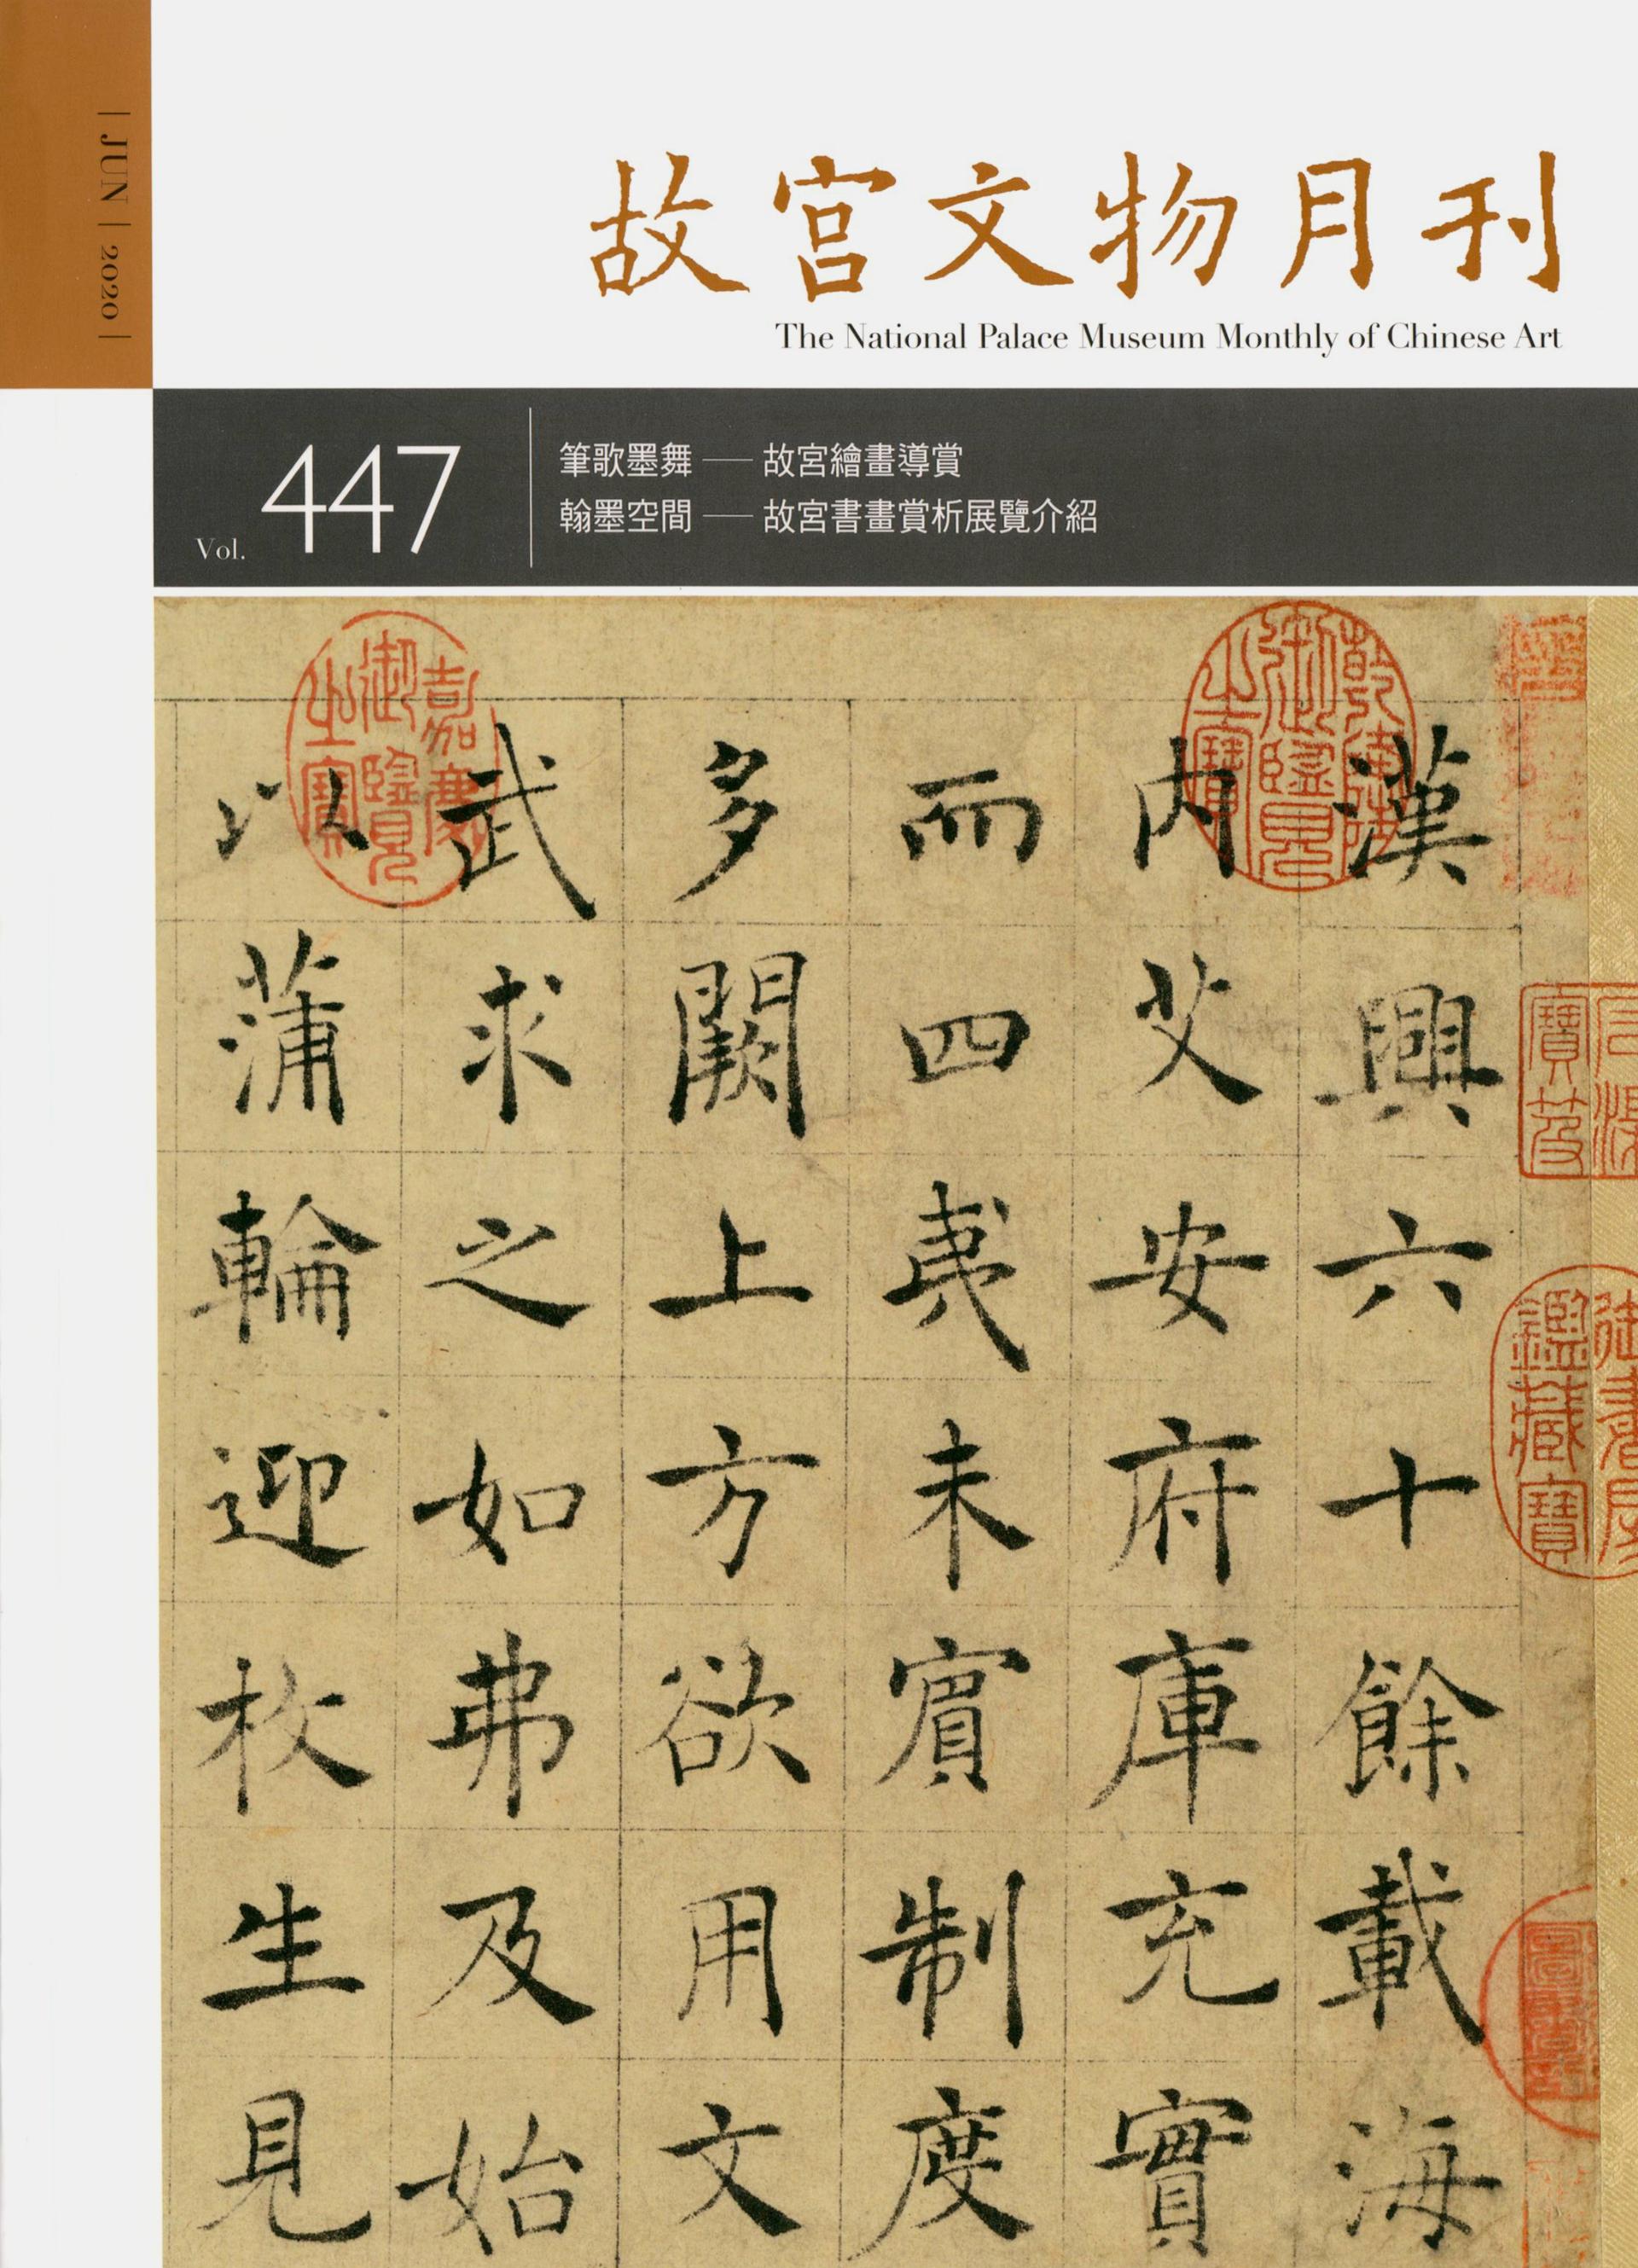 | JUN | 2020 |
故宮文物月刊
The National Palace Museum Monthly of Chinese Art
Vol. 447
筆歌墨舞 —— 故宮繪畫導賞
翰墨空間 —— 故宮書畫賞析展覽介紹
漢興六十餘載海
內艾安府庫充實
而四夷未賓制度
多闕上方欲用文
武求之如弗及始
以蒲輪迎枚生見
乾隆御覽之寶
嘉慶御覽之寶